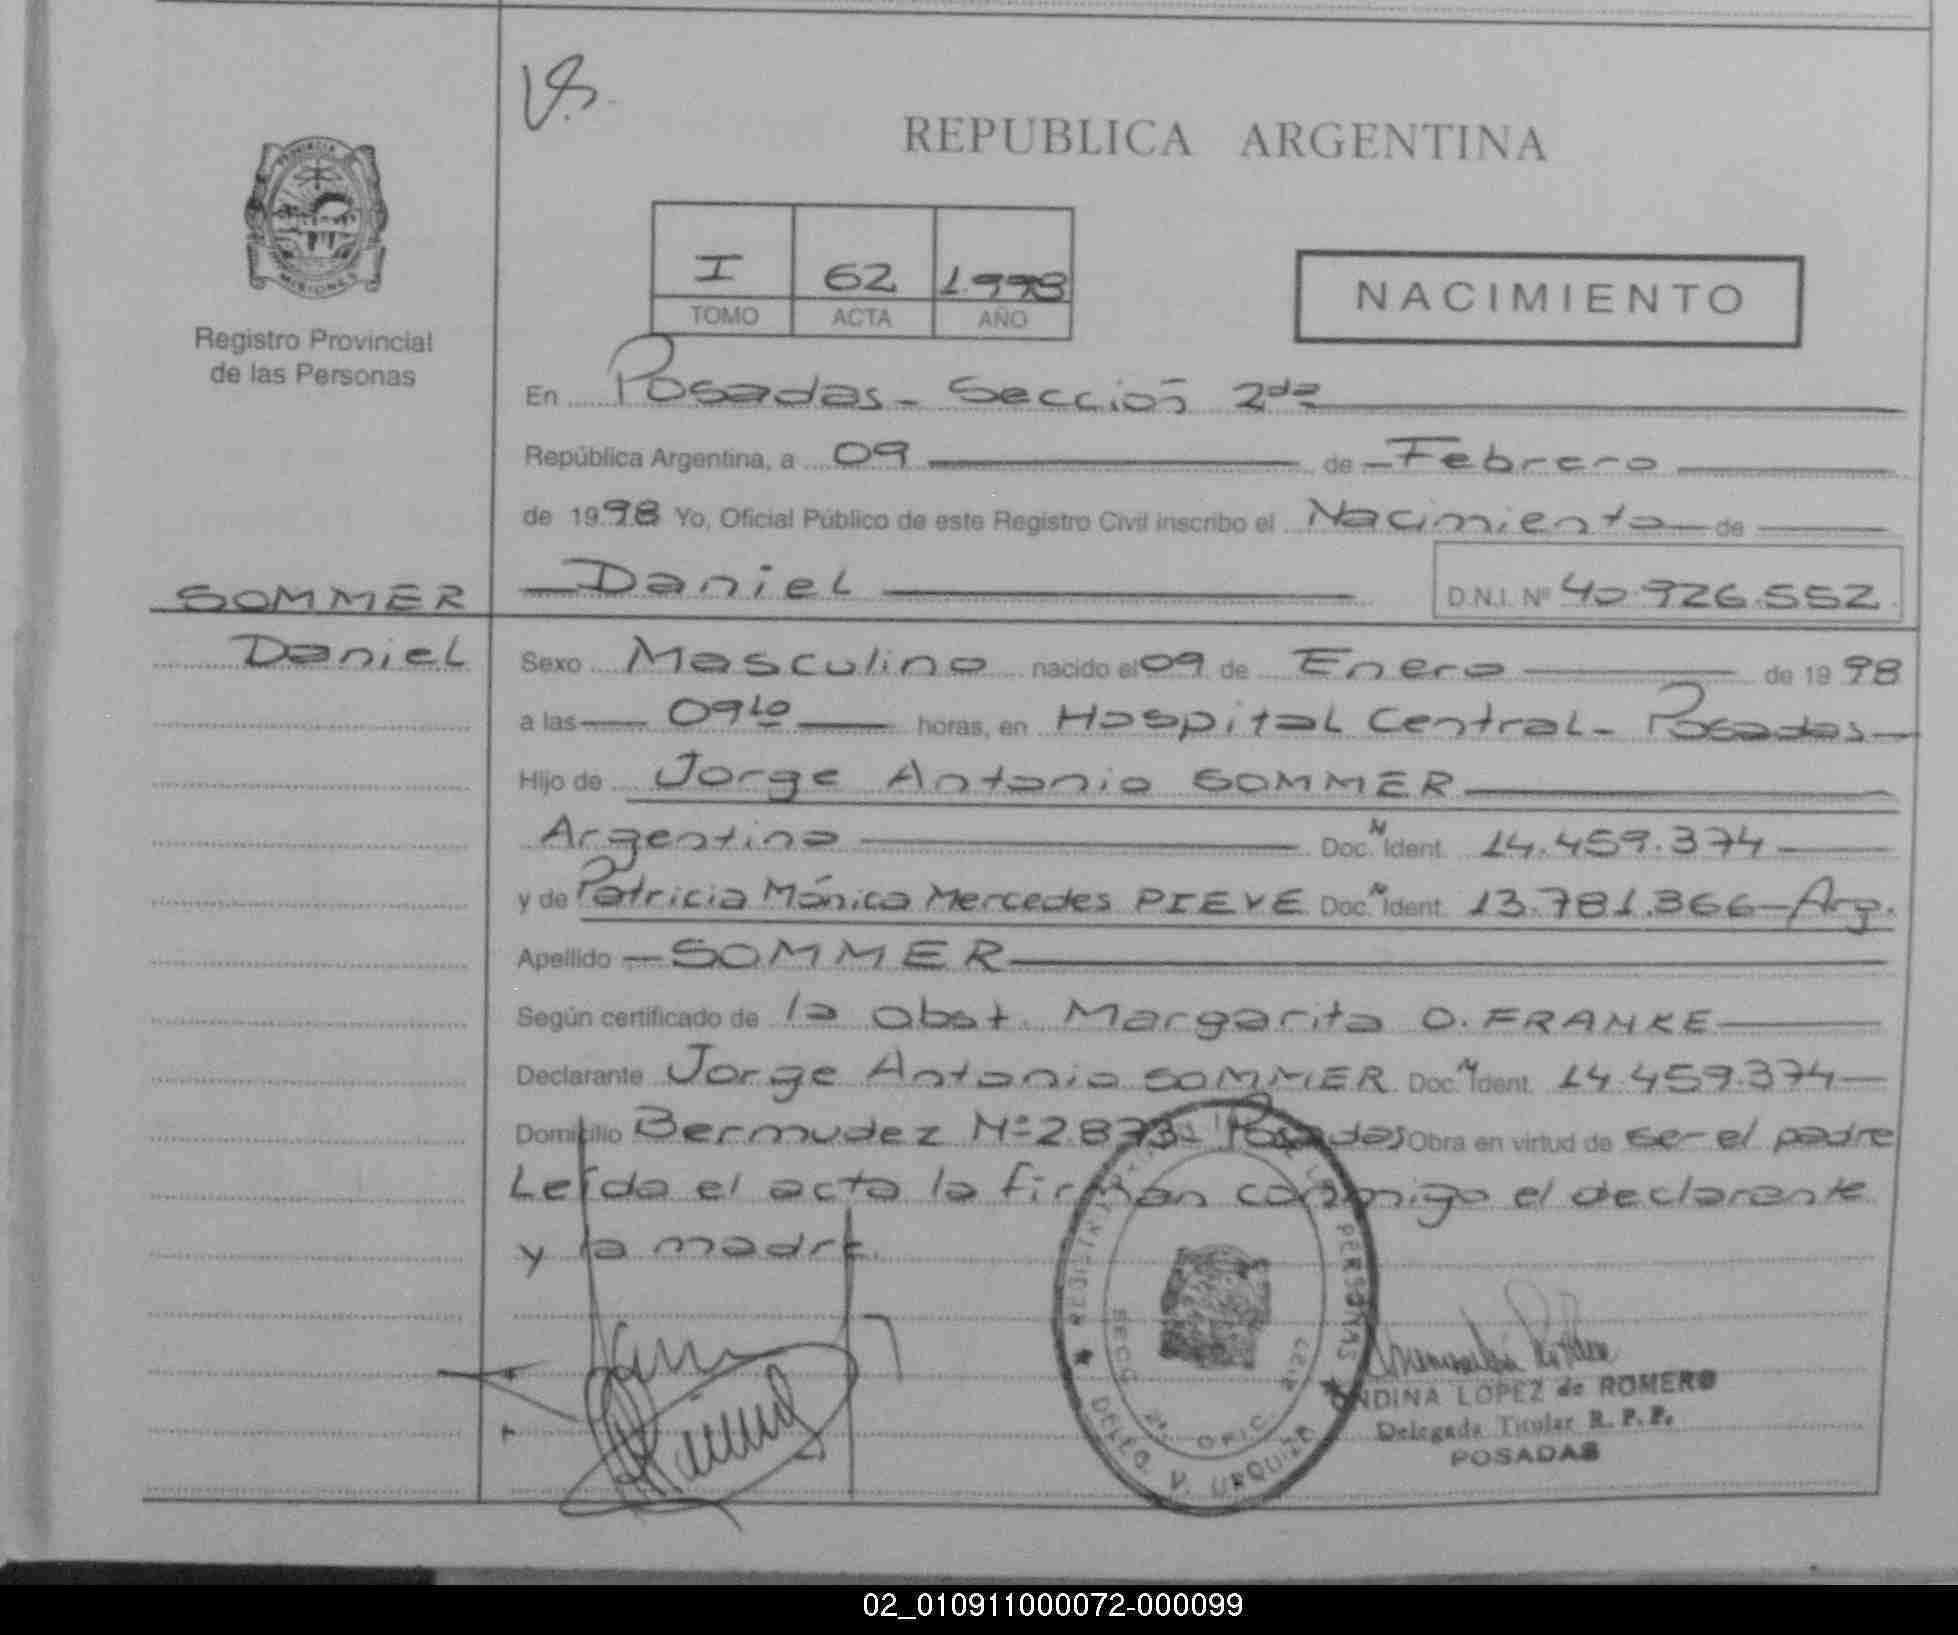 V.S.
REPUBLICA ARGENTINA
PROVINCIA
MISIONES
Registro Provincial
de las Personas
I 62 1.998
TOMO ACTA AÑO
NACIMIENTO
En Posadas - Sección 2da
República Argentina, a 09 de Febrero
de 1998 Yo, Oficial Público de este Registro Civil inscribo el Nacimiento de
Daniel D.N.I. Nº 40.926.552
SOMMER
Daniel
Sexo Masculino nacido el 09 de Enero de 1998
a las 09 10 horas, en Hospital Central - Posadas
Hijo de Jorge Antonio SOMMER
Argentino Doc. N Ident. 14.459.374
y de Patricia Mónica Mercedes PIEVE Doc. N Ident. 13.781.366 - Arg.
Apellido SOMMER
Según certificado de la obst. Margarita O. FRANKE
Declarante Jorge Antonio SOMMER Doc. N Ident. 14.459.374
Domicilio Bermudez Nº 2.873 - Posadas Obra en virtud de ser el padre
Leída el acta la firman conmigo el declarante
y la madre.
PERSONAS
SECC. 2ª OFIC.
DELEG. V. URQUIZA
LOPEZ de ROMERO
Delegada Titular R. P. P.
POSADAS
02_010911000072-000099